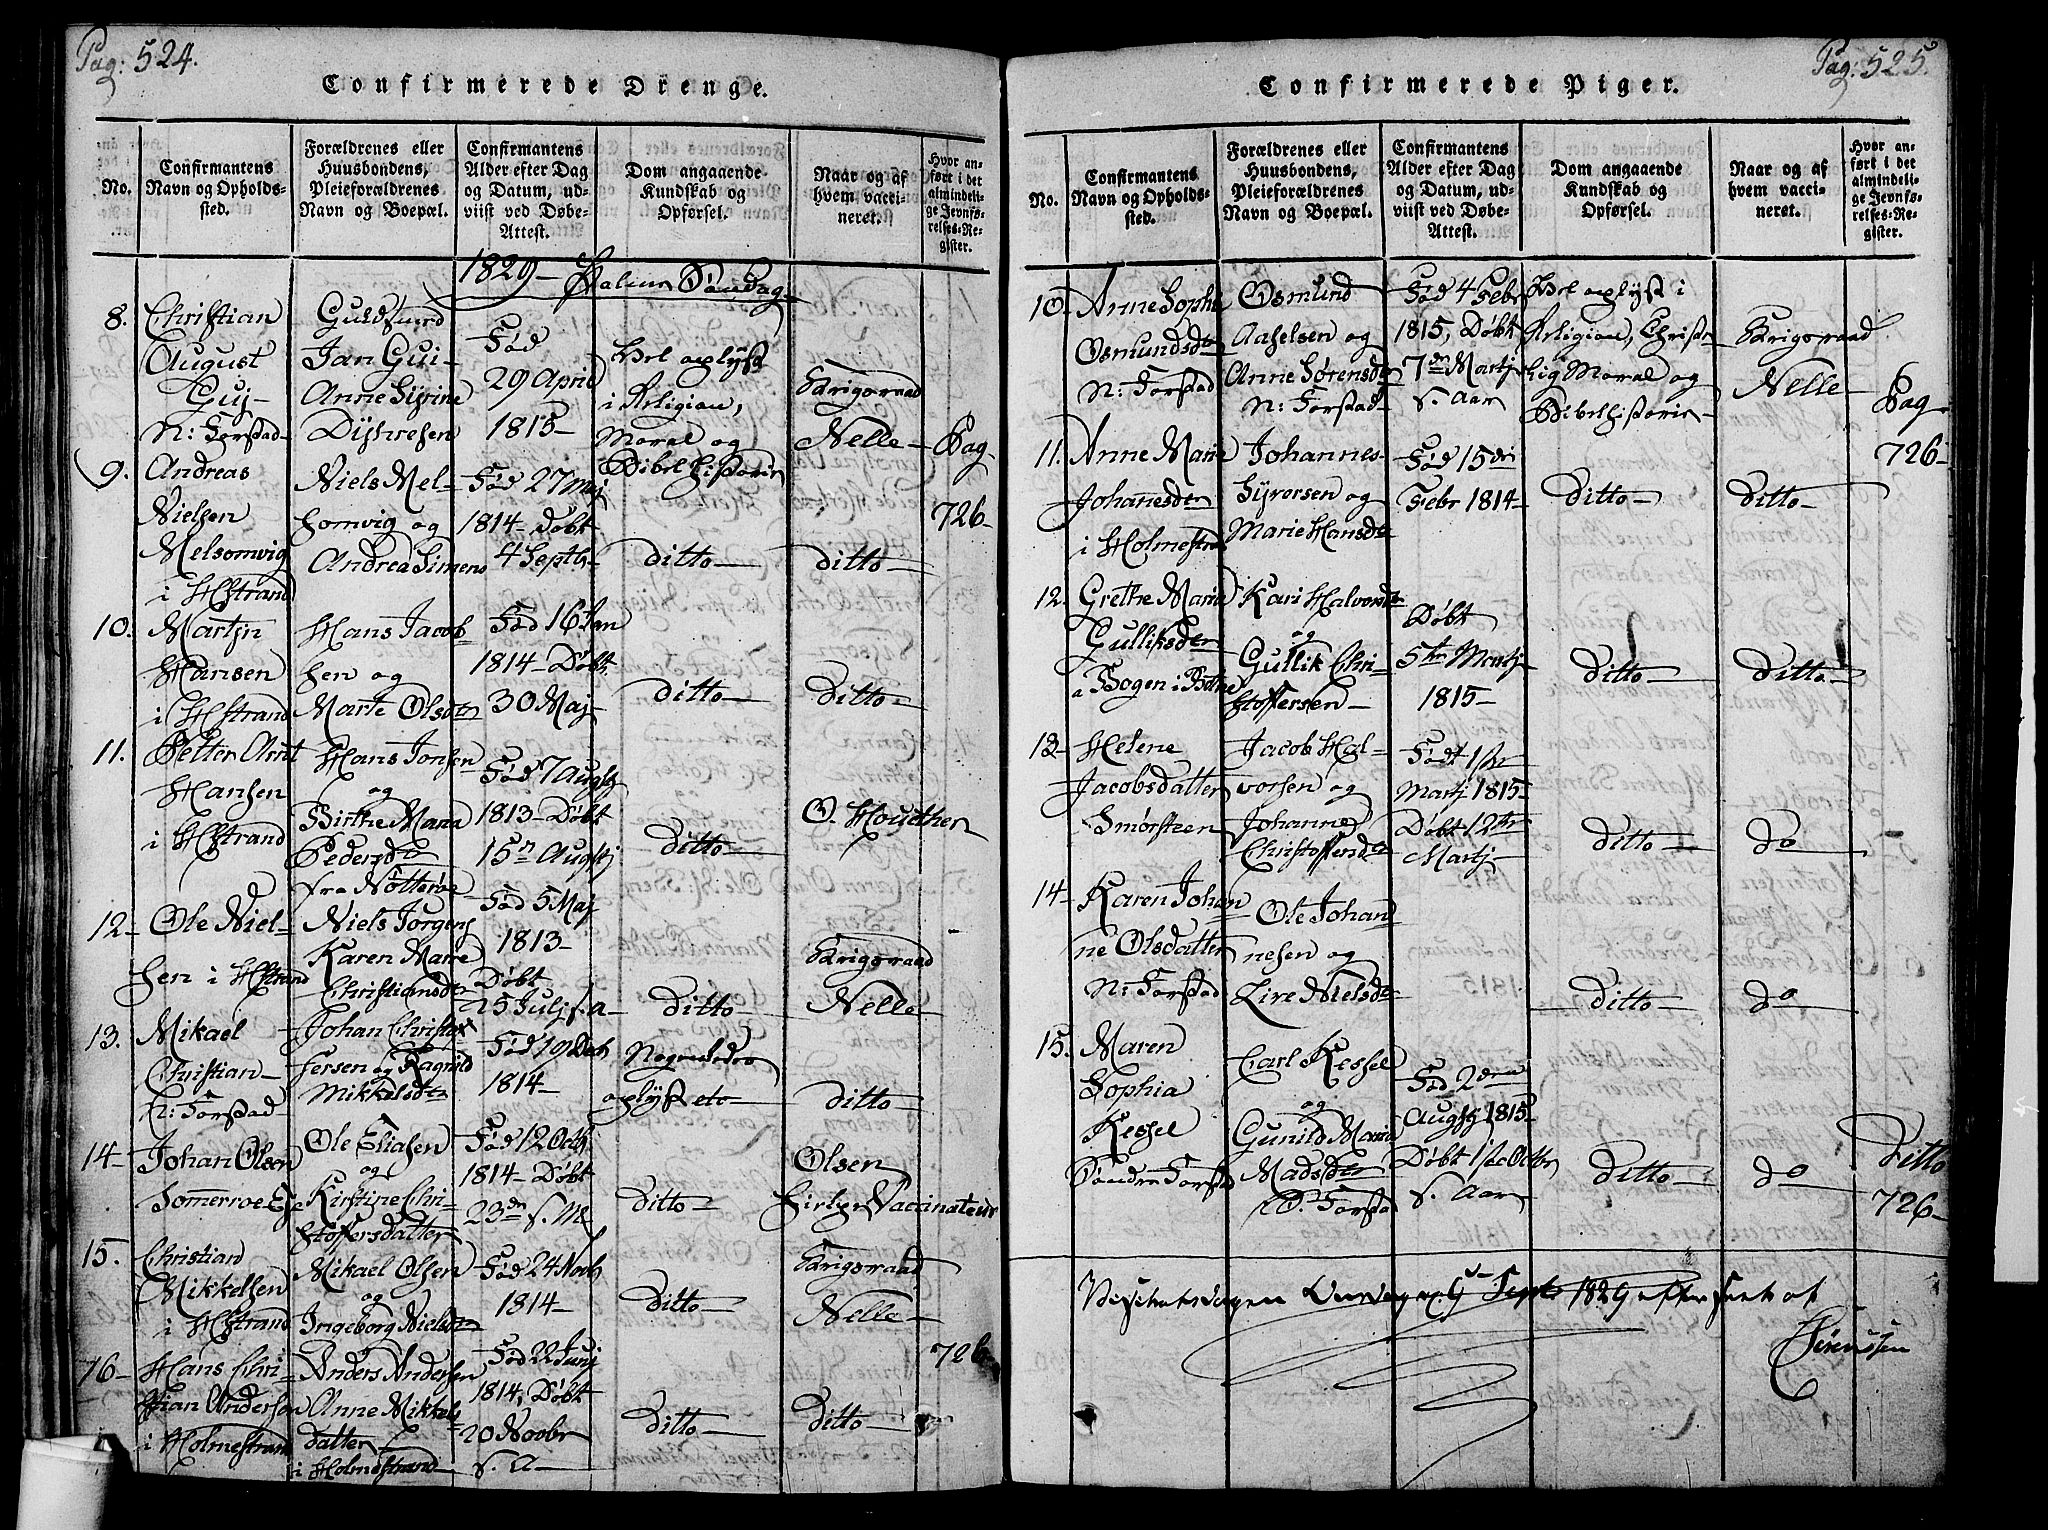 Pag: 524.
Confirmerede Drenge.
No.
Confirmantens
Navn og Opholds-
sted.
Forældrenes eller
Huusbondens,
Pleieforældrenes
Navn og Boepæl.
Confirmantens
Alder efter Dag
og Datum, ud-
viist ved Døbe-
Attest.
Dom angaaende
Kundskab og
Opførsel.
Naar og af
hvem vacci-
neret.
Hvor an-
ført i det
almindeli-
ge Jevnfø-
relses-Re-
gister.
1829 – Palme Søndag
8.
Christian
August
Guj-
N: Forstad-
Guldsmed
Jan Gui-
Anne Sÿrine
Fød
29 April
1815-
Vel oplÿst
i Religion,
Moral og
Bibel Historie
Brigsraad
Nelle-
Pag
726-
9.
Andreas
Nielsen
Melsomvig
i HStrand
Niels Mel-
somvig og
Andrea Simens
Fød 27 Maj
1814- døbt
4 Septb-
ditto-
ditto-
10.
Martjn
Hansen
i HStrand
Hans Jacob
sen og
Marte Olsdtr
Fød 16 Jan
1814- Døbt
30 Maj-
ditto-
ditto-
11.
Petter Arnt
Hansen
i HStrand
Hans Jonsen
og
Birthe Maria
Pedersdtr
fra Nötteröe
Fød 7 Augstj
1813- Døbt
15n Augstj
ditto-
O. Houether
12-
Ole Niel-
sen i HStrand
Niels Jörgens
Karen Marie
Christiansdtr
Fød 5 Maj
1813-
Døbt
25 Julj s. a-
ditto-
Brigsraad
Nelle-
13.
Mikael
Christian-
N: Forstad-
Johan Christof
fersen og Ragnild
Mikkelsdtr
Fød 19 Decb
1814-
oplÿst etc-
ditto-
14-
Johan Olsen
Sommerroe Eje
Ole Eliasen
og
Kirstine Chri-
stoffersdatter
Fød 12 Octb
1814- Døbt
23de s. M
ditto-
Olsen
Vaccinateur
15.
Christian
Mikkelsen
i HStrand
Mikael Olsen
og
Ingeborg Nielsdtr
Fød 24 Novb
1814-
ditto-
Brigsraad
Nelle-
16-
Hans Chri-
stian Andersen
i Holmestrand
Anders Andersen
Anne Mikkels
datter-
i Holmestrand
Fød 22 Junj
1814, Døbt
20 Novbr
s. A-
ditto-
ditto-
726-
Pag: 525.
Confirmerede Piger.
No.
Confirmantens
Navn og Opholds-
sted.
Forældrenes eller
Huusbondens,
Pleieforældrenes
Navn og Boepæl.
Confirmantens
Alder efter Dag
og Datum, ud-
viist ved Døbe-
Attest.
Dom angaaende
Kundskab og
Opførsel.
Naar og af
hvem vacci-
neret.
Hvor an-
ført i det
almindeli-
ge Jevnfø-
relses-Re-
gister.
10-
Anne Sophi
Osmundsdtr
N: Forstad
Osmund
Aaselsen og
Anne Sörensdtr
N: Forstad-
Fød 4 Febr
1815, Døbt
7de Martj
s. Aar
Vel oplyst i
Religion, Christe-
lig Moral og
Bibelhistorie-
Brigsraad
Nelle-
Pag
726-
11.
Anne Marie
Johanesdtr
i Holmestra
Johannes-
Syversen og
Marie Hansdtr
Fød 15de
Febr 1814-
ditto-
ditto-
12.
Grethe Maria
Gulliksdtr
a Bogen i Botne
Kari Halvorsdtr
og
Gullik Chri-
stoffersen-
Døbt
5te Martj
1815-
ditto-
ditto-
13-
Helene
Jacobsdatter
Smörsteen
Jacob Hal-
vorsen og
Johanne
Christoffersdtr
Født 1ste
Martj 1815-
Døbt 12te
Martj-
ditto-
do
14-
Karen Johan
ne Olsdatter
N: Forstad
Ole Johan
nesen og
Live Nielsdtr
ditto-
do
15.
Maren
Sophia
Kessel
Söndre Forstad
Carl Kessel
og
Gunild Maria
Madsdtr
S. Forstad
Fød 2den
Augstj 1815
Døbt 1ste Octbr
s. Aar
ditto-
do
Ditto
726-
Visitatsdagen Onsdag 9de Septr 1829 efterseet af
Sörenssen